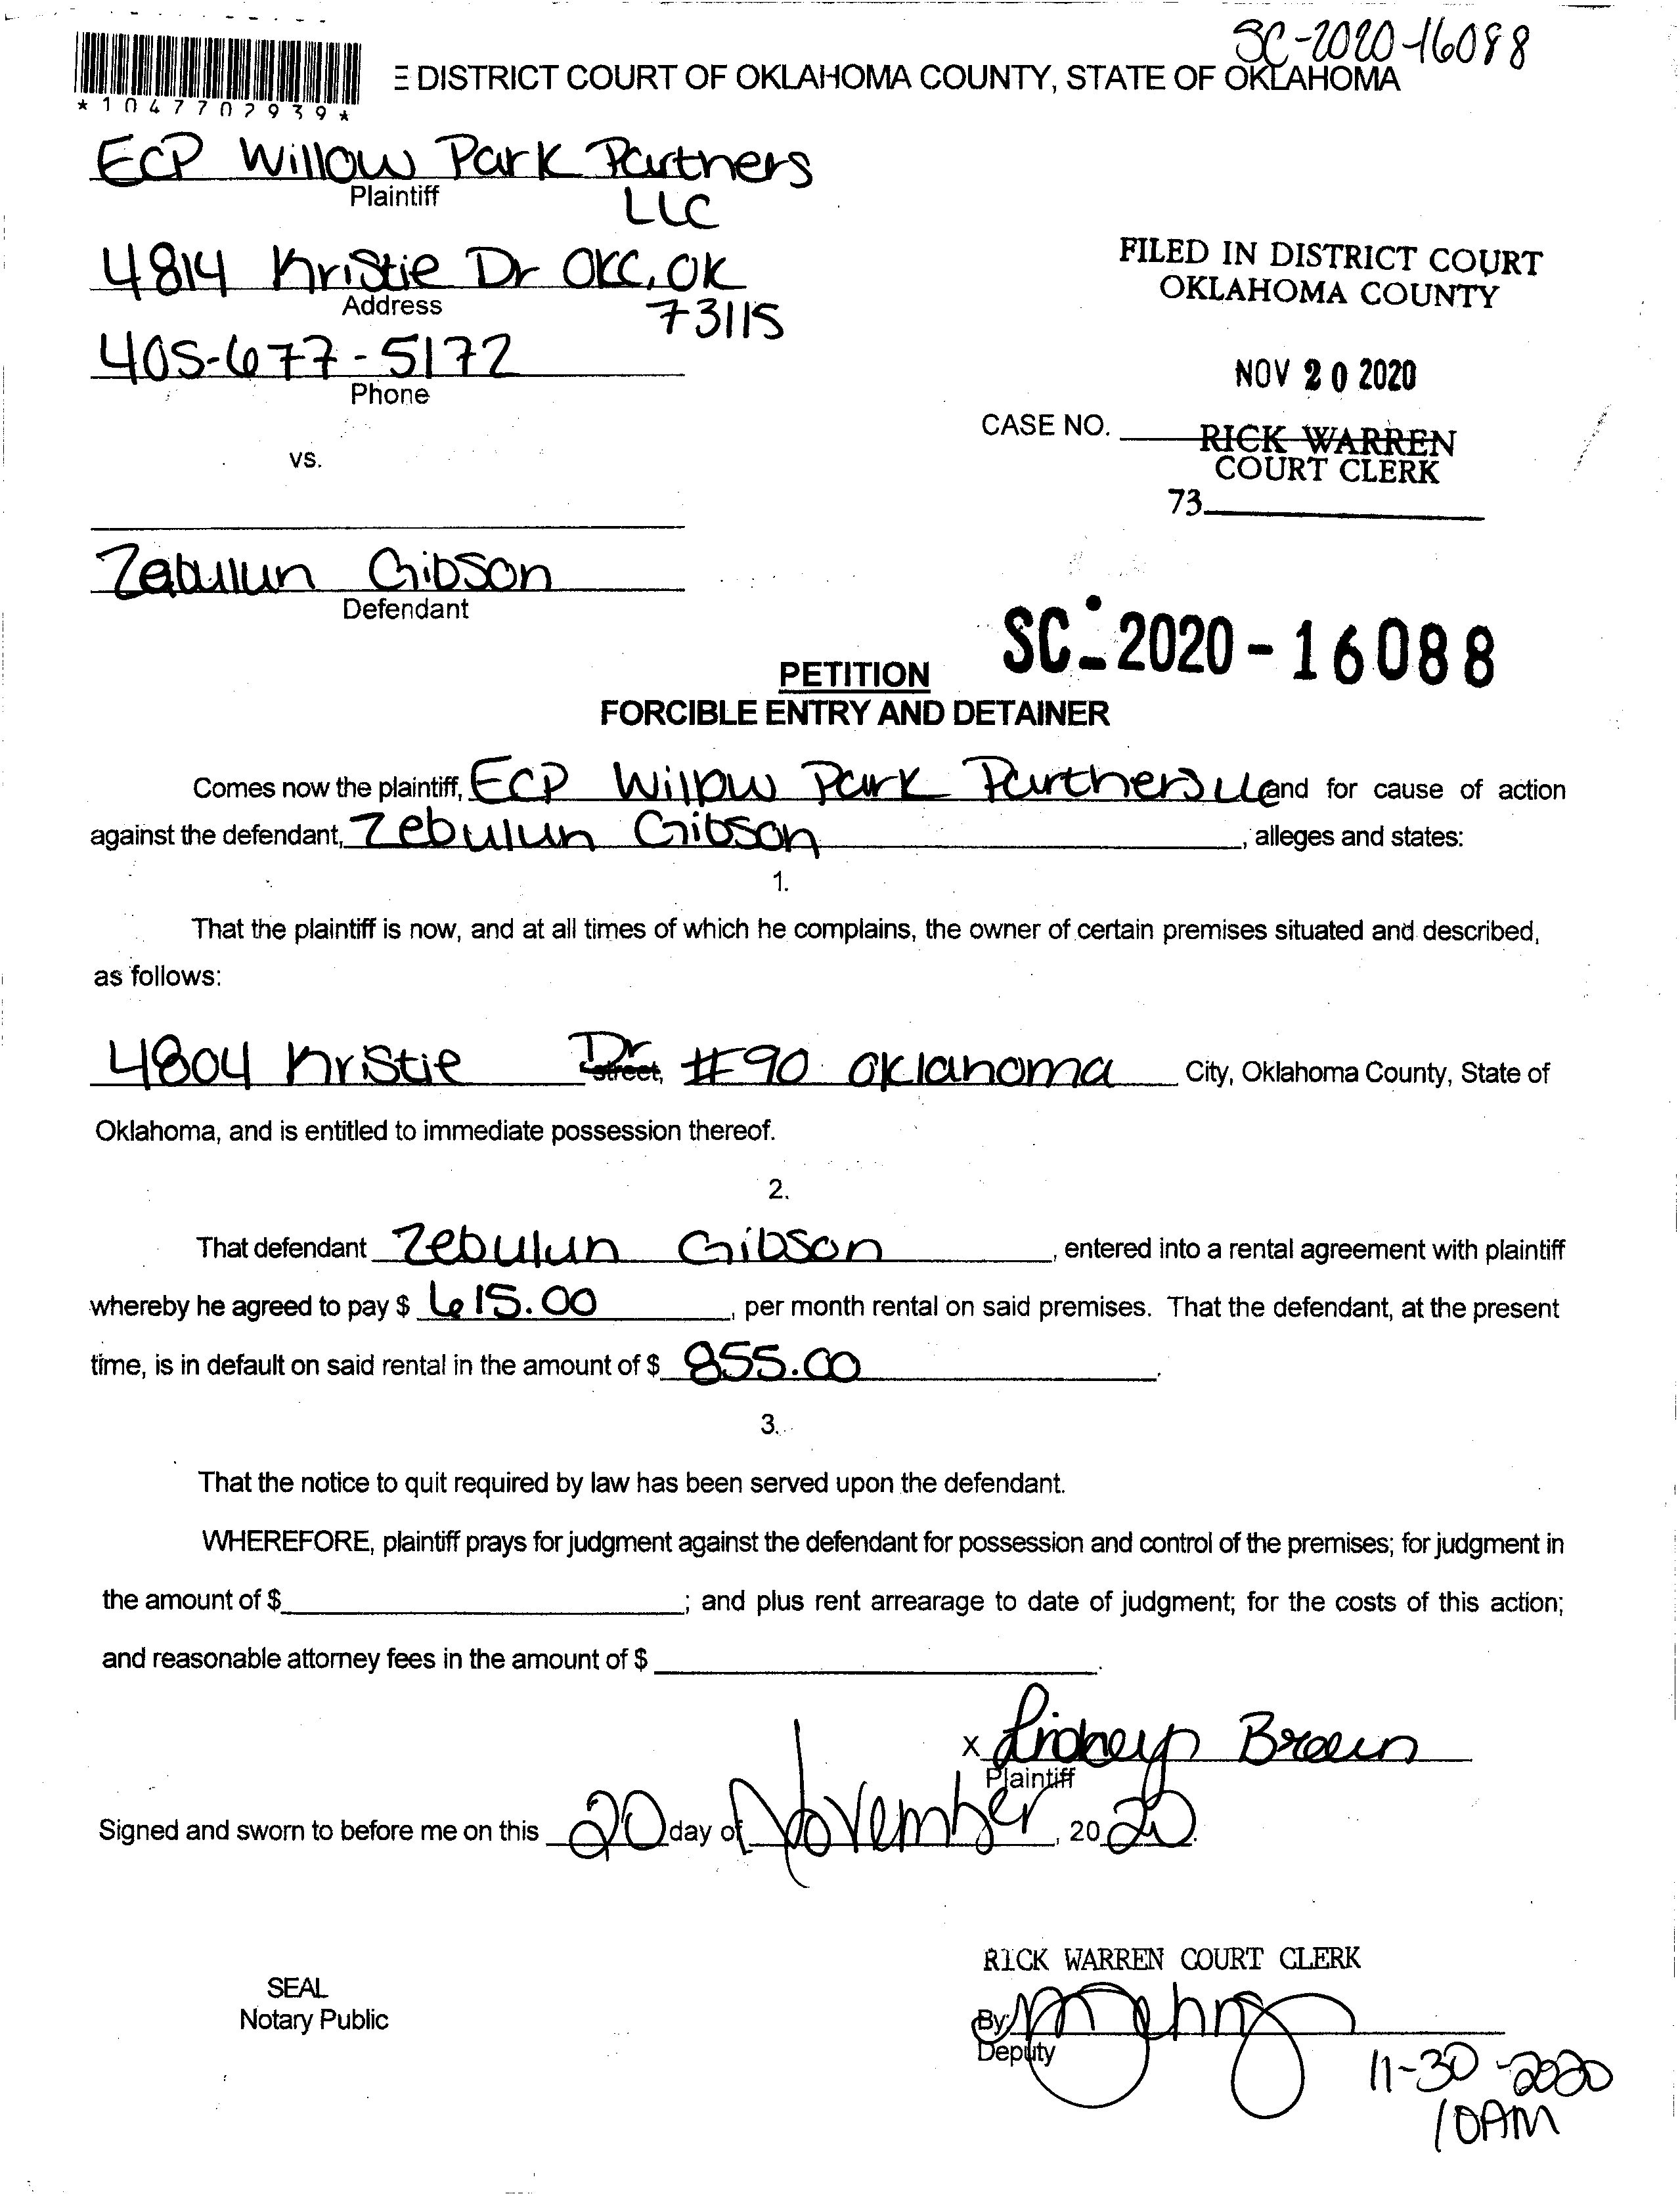 SC-2020-16088
E DISTRICT COURT OF OKLAHOMA COUNTY, STATE OF OKLAHOMA
*1047702939*
ECP Willow Park Partners
Plaintiff
LLC
4814 Kristie Dr OKC, OK
Address
73115
405-677-5172
Phone
FILED IN DISTRICT COURT
OKLAHOMA COUNTY
NOV 20 2020
CASE NO.
RICK WARREN
COURT CLERK
73
vs.
Zebulun Gibson
Defendant
SC-2020-16088
PETITION
FORCIBLE ENTRY AND DETAINER
Comes now the plaintiff, ECP Willow Park Partners LLC and for cause of action
against the defendant, Zebulun Gibson, alleges and states:
1.
That the plaintiff is now, and at all times of which he complains, the owner of certain premises situated and described,
as follows:
4804 Kristie Dr street, #90 Oklahoma City, Oklahoma County, State of
Oklahoma, and is entitled to immediate possession thereof.
2.
That defendant Zebulun Gibson, entered into a rental agreement with plaintiff
whereby he agreed to pay $ 615.00, per month rental on said premises. That the defendant, at the present
time, is in default on said rental in the amount of $ 855.00.
3.
That the notice to quit required by law has been served upon the defendant.
WHEREFORE, plaintiff prays for judgment against the defendant for possession and control of the premises; for judgment in
the amount of $; and plus rent arrearage to date of judgment; for the costs of this action;
and reasonable attorney fees in the amount of $.
x
Plaintiff
Signed and sworn to before me on this 20 day of November, 2020.
RICK WARREN COURT CLERK
SEAL
Notary Public
By:
Deputy
11-30-2020
10AM